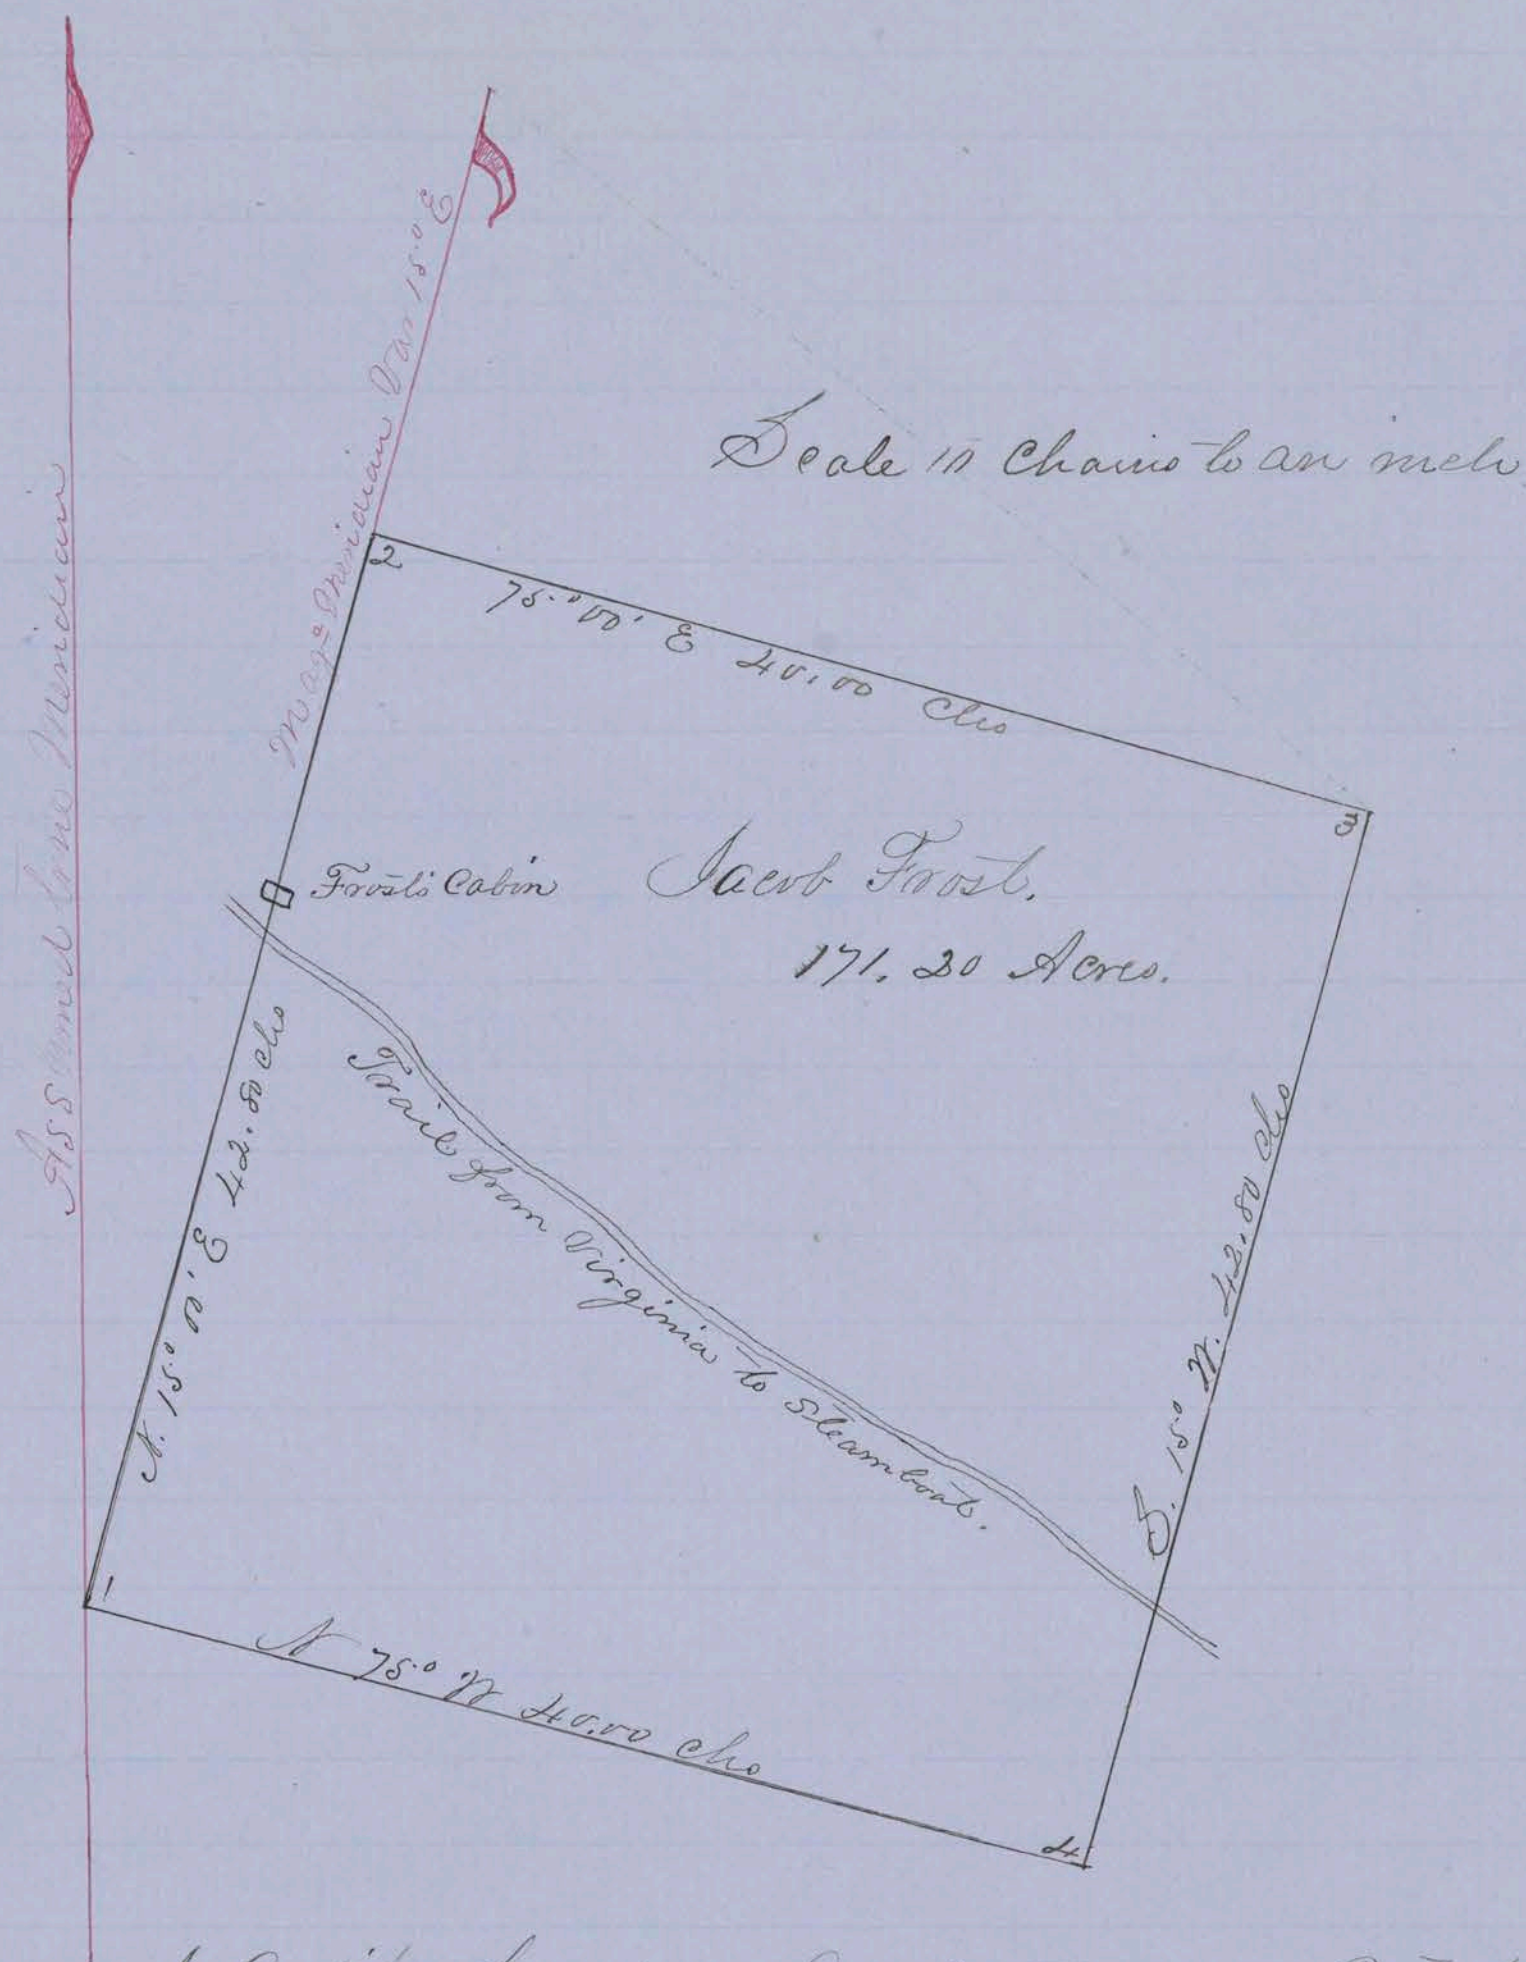 Assumed true Meridian
Mag<sup>c</sup> Meridian Var 15° E
Scale 10 Chains to an inch.
2
75° 00' E 40.00 Chs
3
Frosts Cabin
Jacob Frost.
171.20 Acres.
N. 15° 00' E 42.80 chs
Trail from Virginia to Steamboat.
S. 15° W. 42.80 chs
1
N 75° W 40.00 chs
4